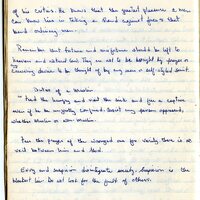 of his critics. He knows that the greatest pleasure a man
can know lies in taking a stand against foes that
hard ordinary men.
Remember that fortune and misfortune should be left to
heaven and natural law. They are not to be bought by prayer or
cunning devices to be thought of by any man or self-styled saint.
Duties of a Muslim
"Feed the hungry and visit the sick and free a captive
if he be unjustly confined. Assist any person oppressed,
whether Muslim or non-Muslim.
Fear the prayer of the wronged one for verily there is no
veil between him and God.
Envy and suspicion disintegrate society. Suspicion is the
blackest lie. Do not look for the fault of others.